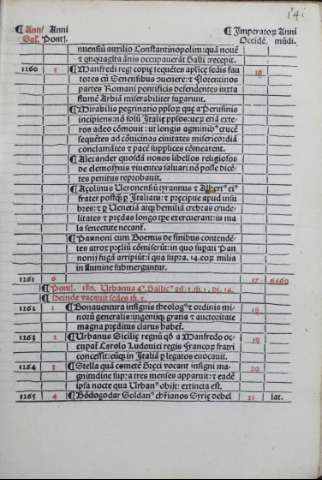 141
¶ Anni Anni ¶ Imperatorꝝ Anni
Sal. Pont. Occidē. mūdi.
nuensiū auxilio Constantinopolim: quā nouē
⁊ qnquagīta ānis occupauerāt Galli recepit.
1260 5 ¶ Manfredi regi copię seqꝫtes aplicę sedis fau 16
tores cū Senensibus vicere: ⁊ Florentinos
partes Romani pontificis defendentes iuxta
flumē Arbiā miserabiliter superant.
¶ Mirabilis pegrinatio
incipiens: nō solū Italię pplos: verū etiā exte
ros adeo cōmouit: vt longis agminibꝰ crucē
sequētes ad cōuicinas ciuitates misericordiā
conclamātes et pacē supplices cōmearent.
¶ Alexander quosdā nouos libellos religiosos
de elemosynis viuentes saluari nō posse dicē
tes penitus reprobauit.
¶ Açolinus Veronensiū tyrannus ⁊ Alberiꝰ eiꝰ
frater postqꝫ pꝰ Italiam: ⁊ precipue apud insu
bres: ⁊ pꝰ Venetiā atqꝫ Aemiliā crebras crude
litates ⁊ prędas longo tpe exercuerant: in ma
la senectute necant.
¶ Pannoni cum Boemis de finibus contendē
tes atrox prēliū cōmiserūt: in quo supati Pan
nonij fugā arripiūt: ī qua supra .14. eoꝝ milia
in flumine submerguntur.
1261 6 17 6460
¶ Pont. 180. Urbanus 4ꝰ. Gallicꝰ
¶ Deinde vacauit sedes
1262 1 ¶ Bonauentura insignis theologꝰ ⁊ ordinis mi 18
norū generalis: ingenijqꝫ gratia ⁊ auctoritate
magna preditus clarus habet.
1263 2 ¶ Urbanus Sicilię regnū qđ a Manfredo oc 19
cupaꝉ Carolo Ludouici regis Francoꝝ fratri
concessit: eūqꝫ in Italiā p legatos euocauit.
1264 3 ¶ Stella quā cometē Gręci vocant insigni ma 20
gnitudine sup̄ra tres menses apparuit: ⁊ eadē
ipsa nocte qua Urbanꝰ obijt: extincta est.
1265 4 ¶ Bōdogodar Soldanꝰ chr̄ianos Syrię debel 21 lat.